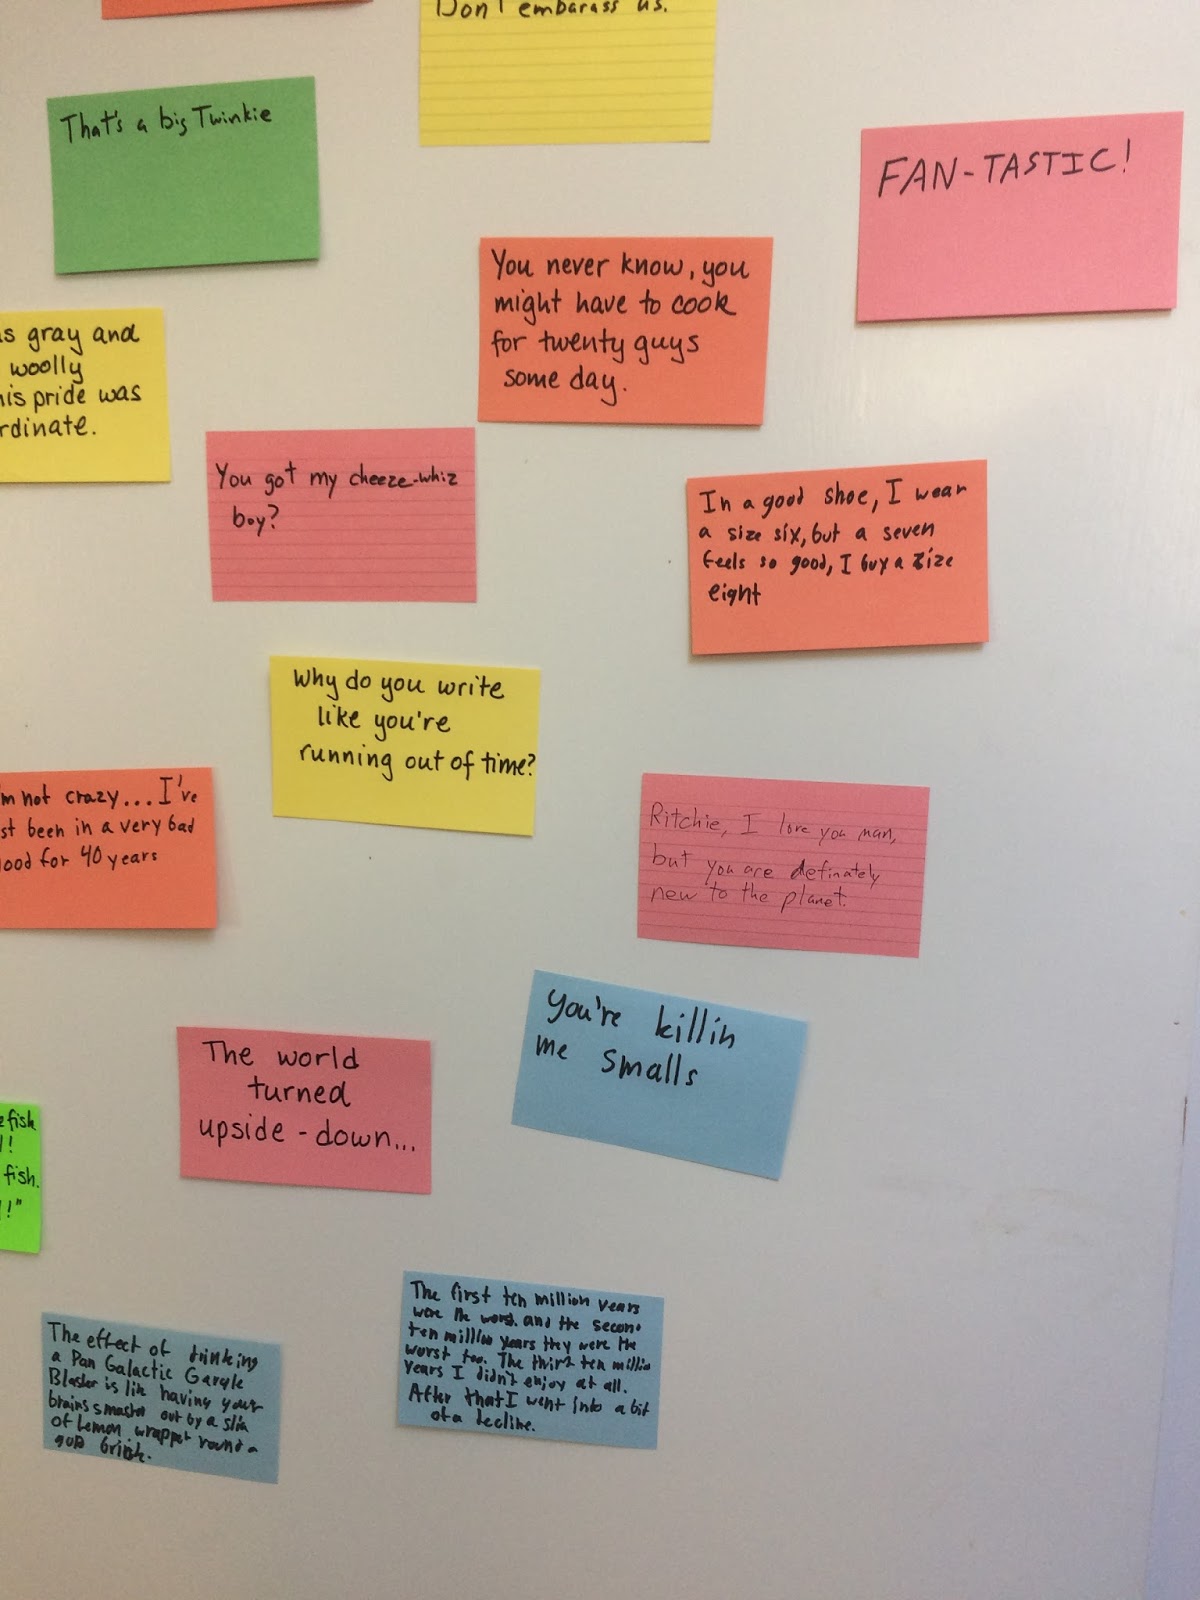 Don't embarass us.
That's a big Twinkie
FAN-TASTIC!
You never know, you
might have to cook
for twenty guys
some day.
gray and
woolly
pride was
You got my cheeze-whiz
boy?
In a good shoe, I wear
a size six, but a seven
feels so good, I buy a size
eight
Why do you write
like you're
running out of time?
not crazy... I've
been in a very bad
for 40 years
Ritchie, I love you man,
but you are definately
new to the planet.
You're killin
me smalls
The world
turned
upside-down...
fish
!
fish.
!"
The first ten million years
were the worst and the second
ten million years they were the
worst too. The third ten million
years I didn't enjoy at all.
After that I went into a bit
of a decline.
The effect of drinking
a Pan Galactic Gargle
Blaster is like having your
brains smashed out by a slice
of lemon wrapped round a
gold brick.